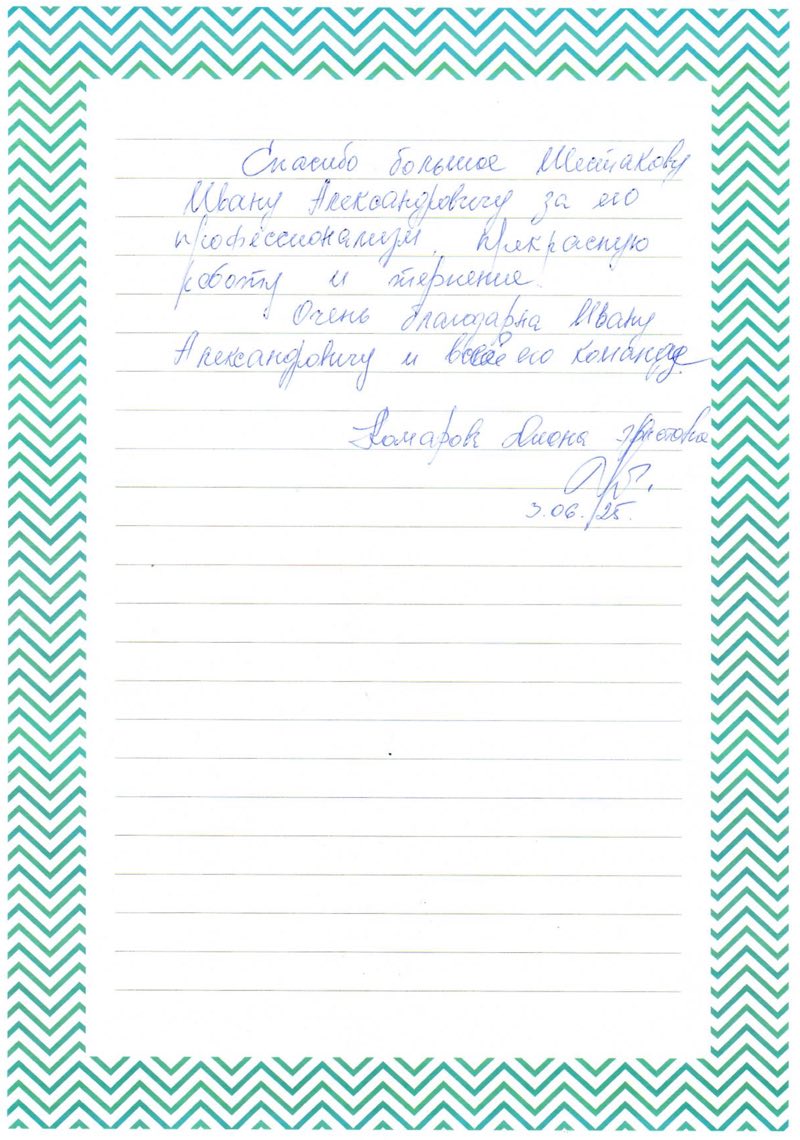 Спасибо большое Шестакову
Ивану Александровичу за его
профессионализм, прекрасную
работу и терпение.
Очень благодарна Ивану
Александровичу и всей его команде.
Комарова Диана
3.06.25.